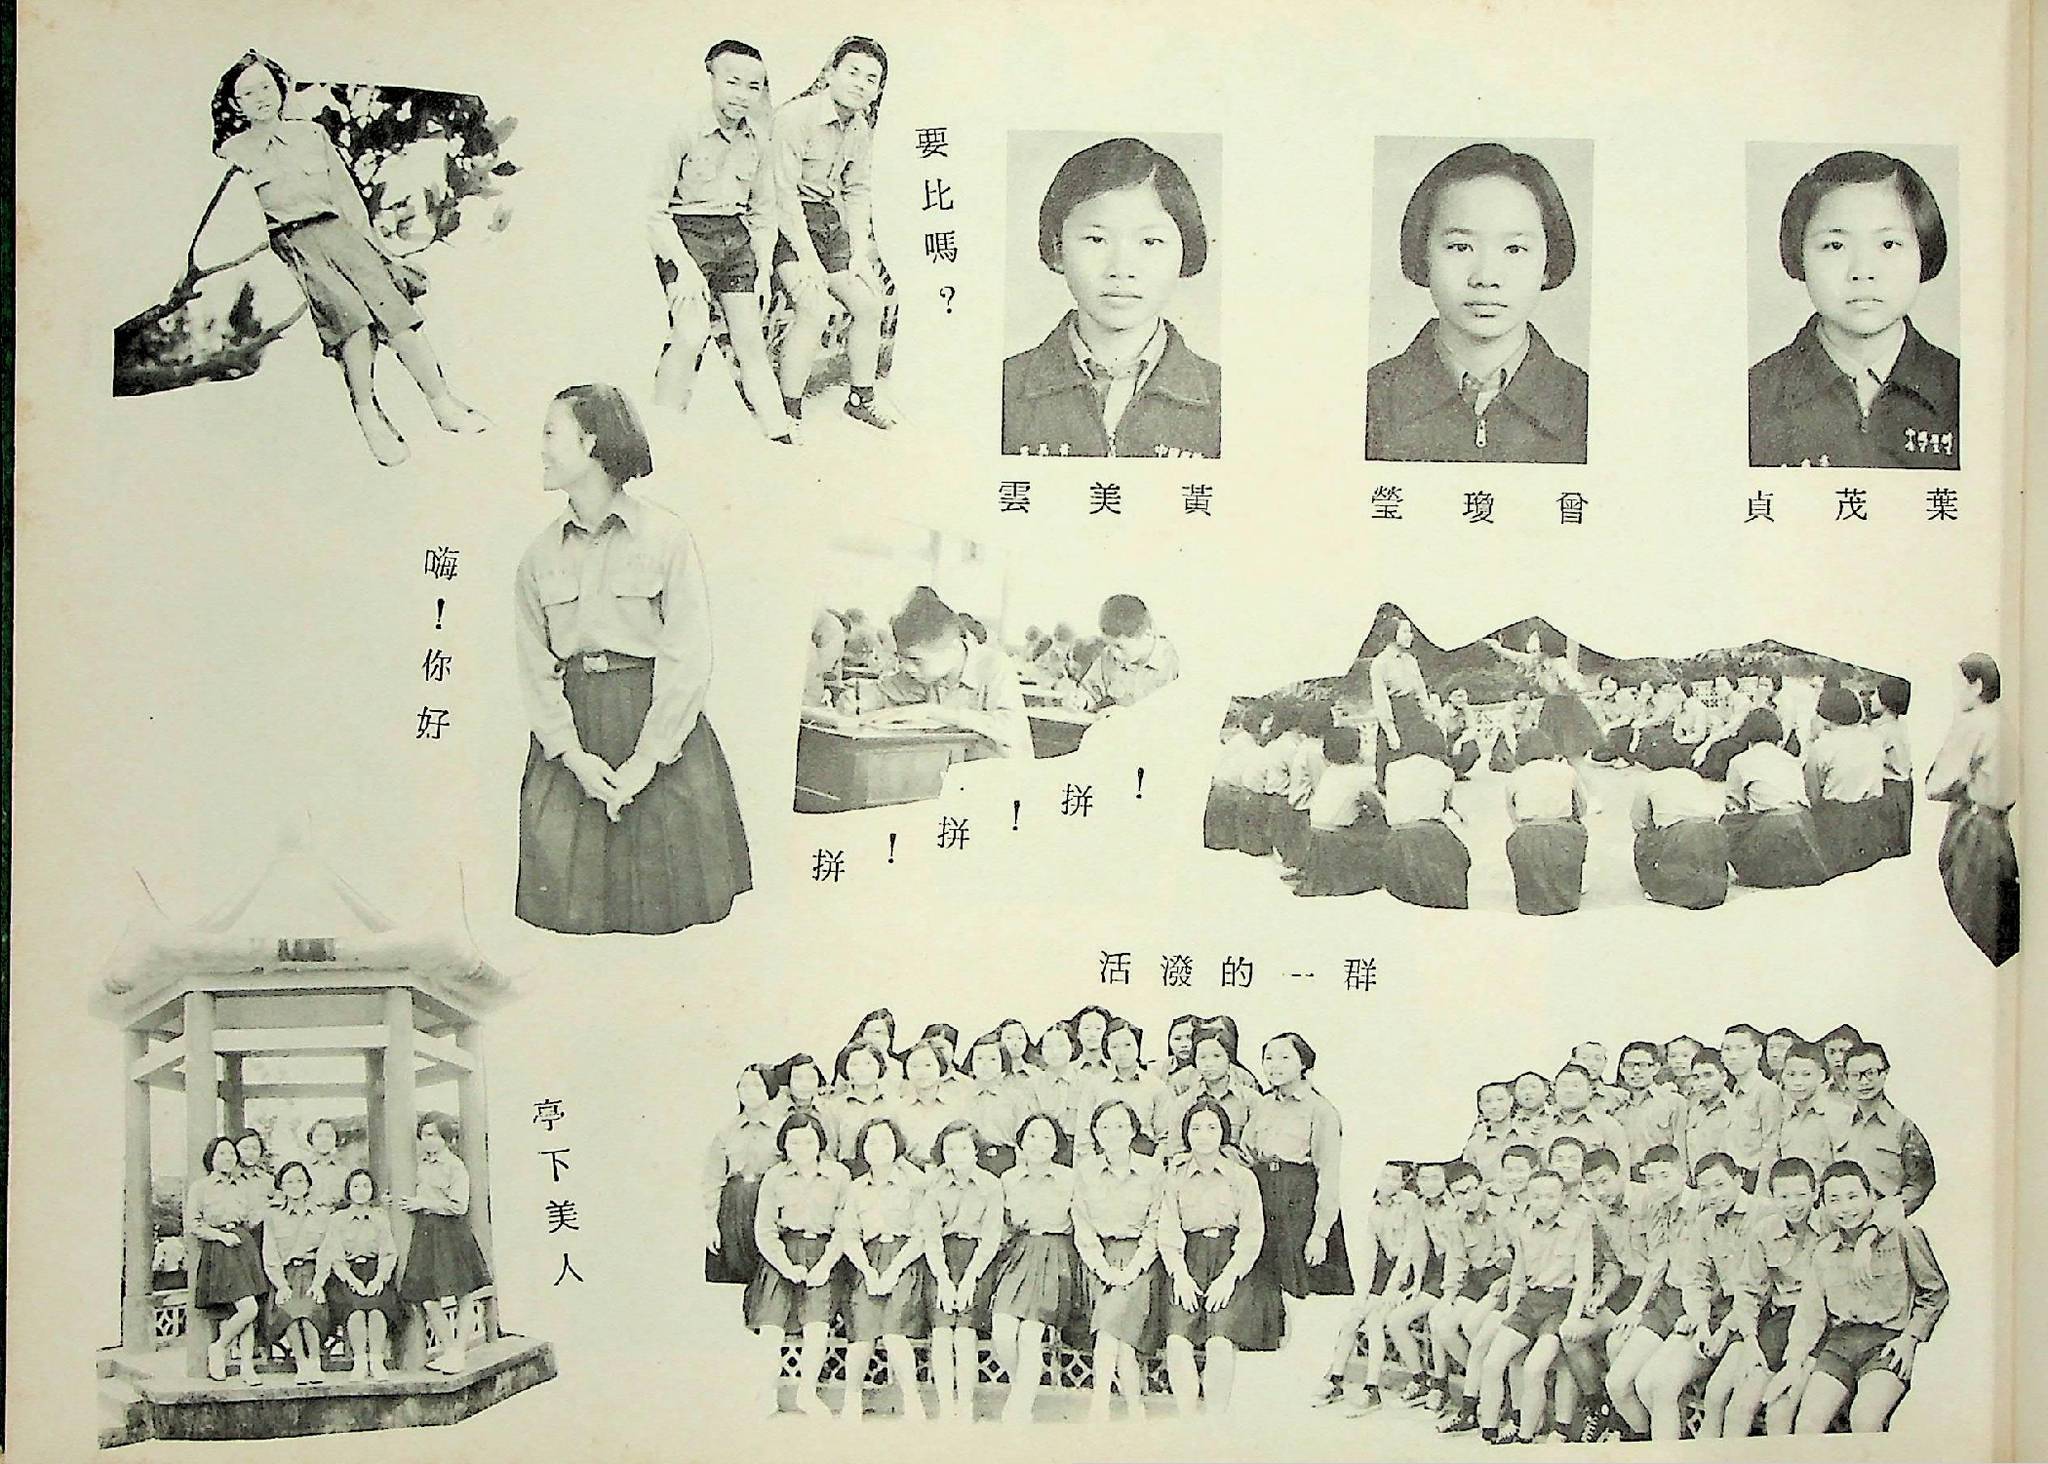 要比嗎？
葉茂貞
曾瓊瑩
黃美雲
嗨！你好
拼！拼！拼！
活潑的一群
亭下美人